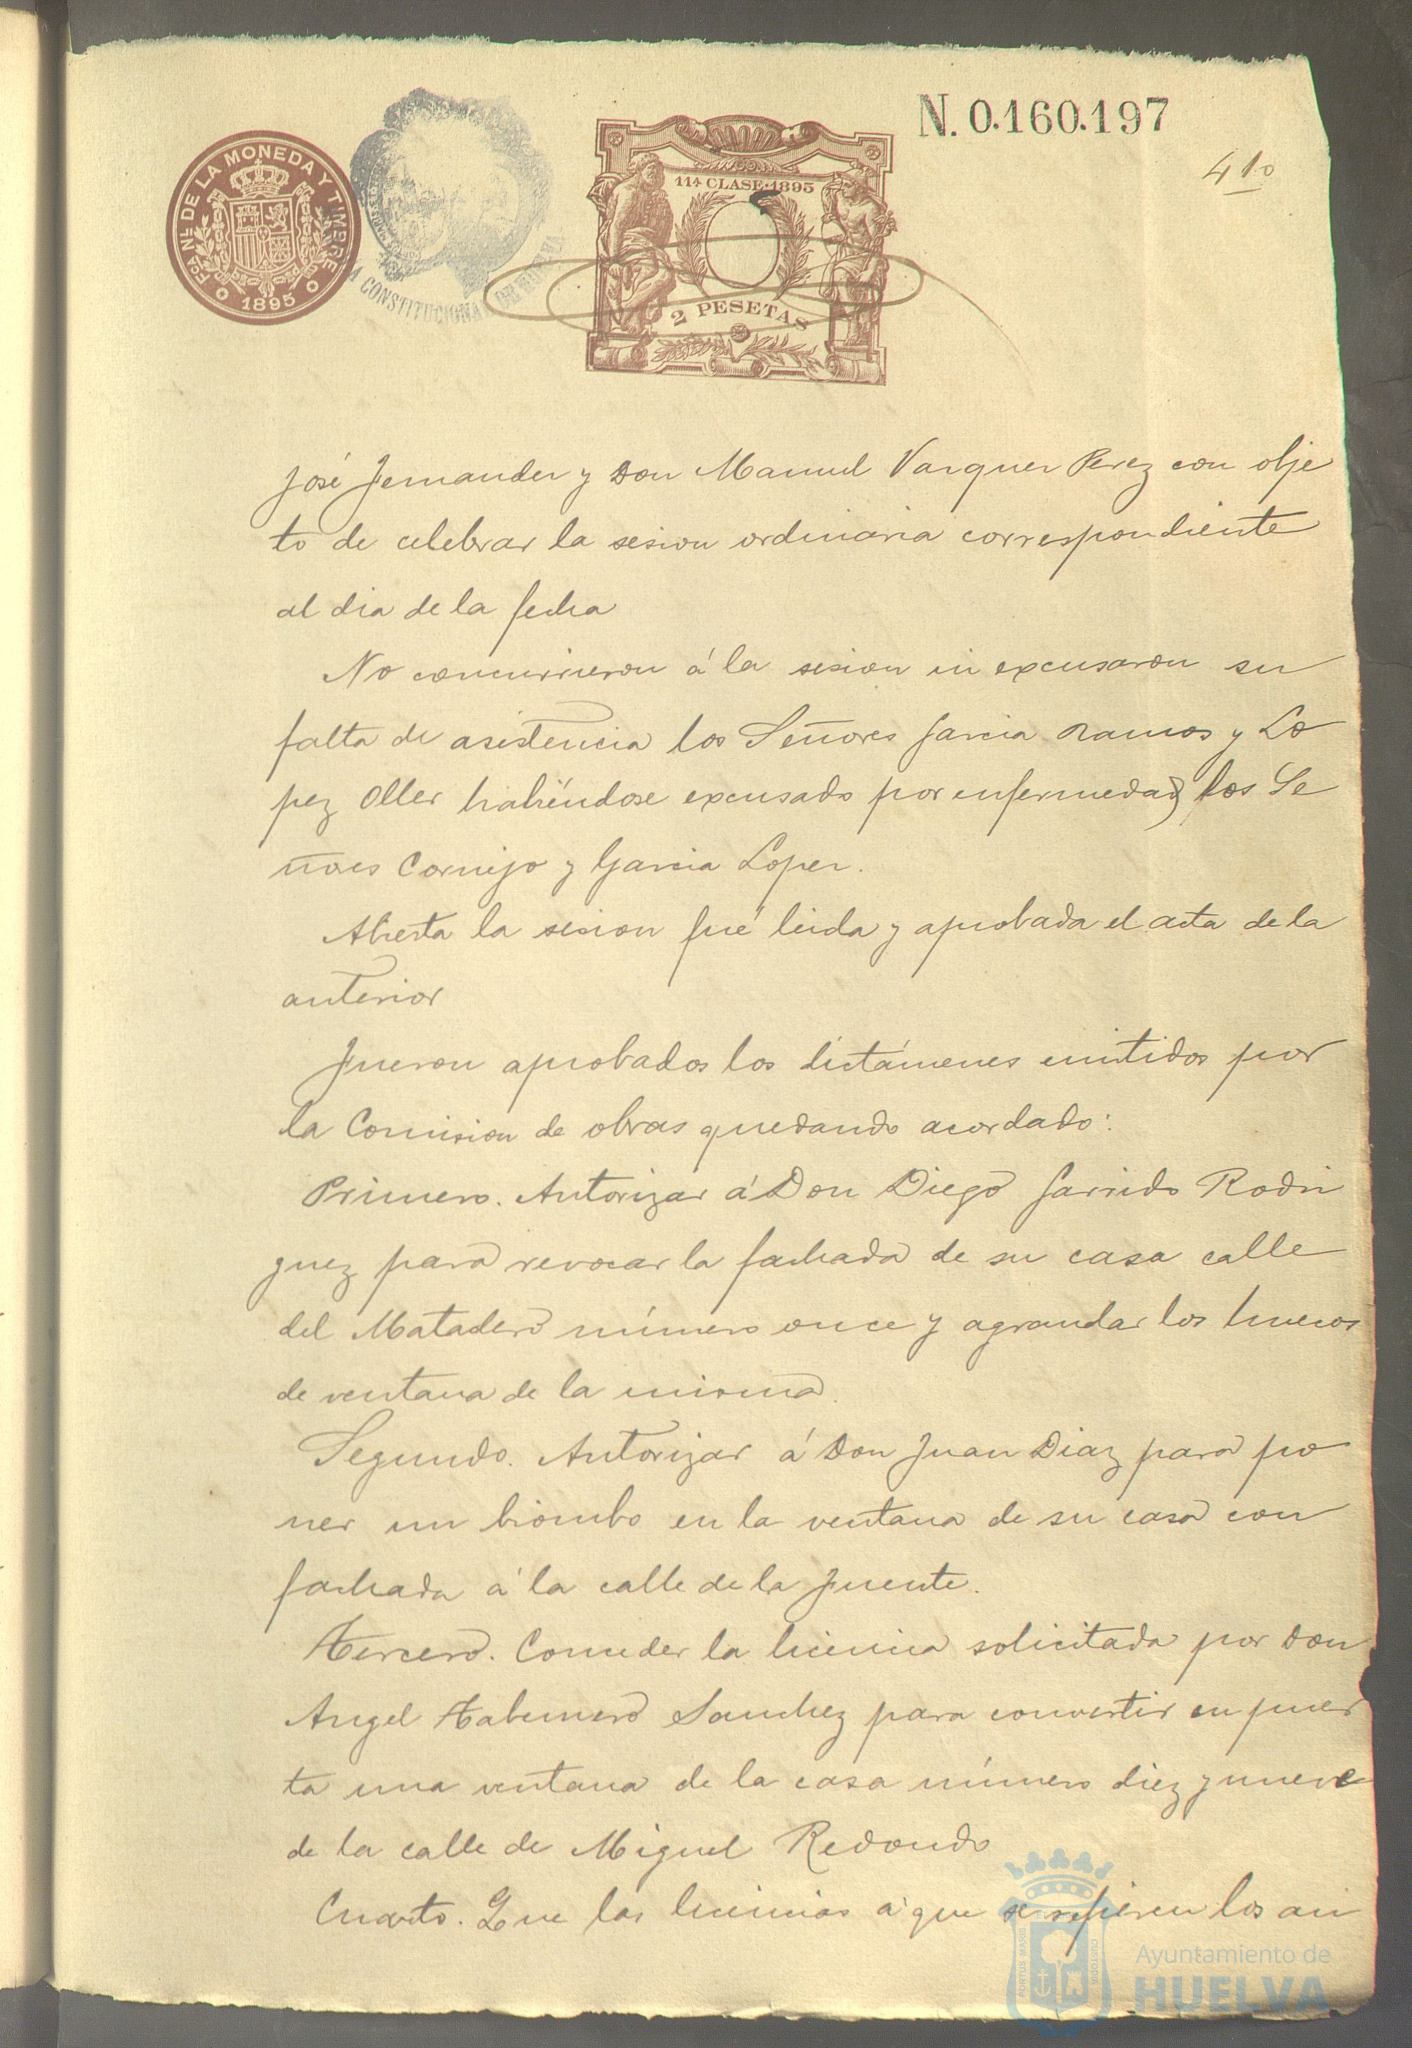 FCA NL DE LA MONEDA Y TIMBRE
1895
A CONSTITUCIONAL DE HUELVA
11ª CLASE·1895
2 PESETAS
N. 0.160.197
410
José Fernandez y Don Manuel Vazquez Perez con obje
to de celebrar la sesion ordinaria correspondiente
al dia de la fecha
No concurrieron á la sesion ni excusaron su
falta de asistencia los Señores Garcia Ramos y Lo
pez Oller habiéndose excusado por enfermedad los Se
ñores Cornejo y Garcia Lopez.
Abierta la sesion fué leida y aprobada el acta de la
anterior
Fueron aprobados los dictámenes emitidos por
la Comision de obras quedando acordado:
Primero. Autorizar á Don Diego Garrido Rodri
guez para revocar la fachada de su casa calle
del Matadero número once y agrandar los huecos
de ventana de la misma.
Segundo. Autorizar á Don Juan Diaz para po
ner un biombo en la ventana de su casa con
fachada á la calle de la Fuente.
Tercero. Conceder la licencia solicitada por Don
Angel Tabernero Sanchez para convertir en puer
ta una ventana de la casa número diez y nueve
de la calle de Miguel Redondo
Cuarto. Que las licencias á que se refieren los an
PORTUS MARIS CUSTODIA
Ayuntamiento de
HUELVA